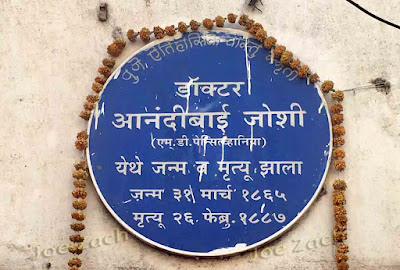 पुणे, ऐतिहासिक वास्तु स्मृती
डॉक्टर
आनंदीबाई जोशी
(एम.डी.पेन्सिल्व्हानिया)
येथे जन्म व मृत्यू झाला
जन्म ३१ मार्च १८६५
मृत्यू २६ फेब्रु. १८८७
Joe Zach
Joe Zach
Joe Zach